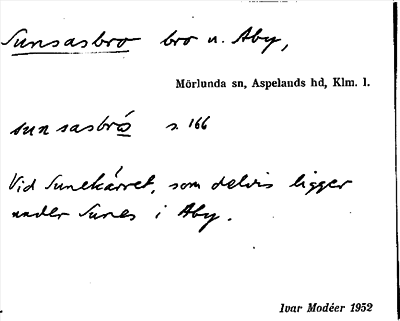 Sunsasbro bro u. Aby,
Mörlunda sn, Aspelands hd, Klm. l.
sunsasbró s. 166
Vid Sunekärret, som delvis ligger
under Sunes i Aby.
Ivar Modéer 1952